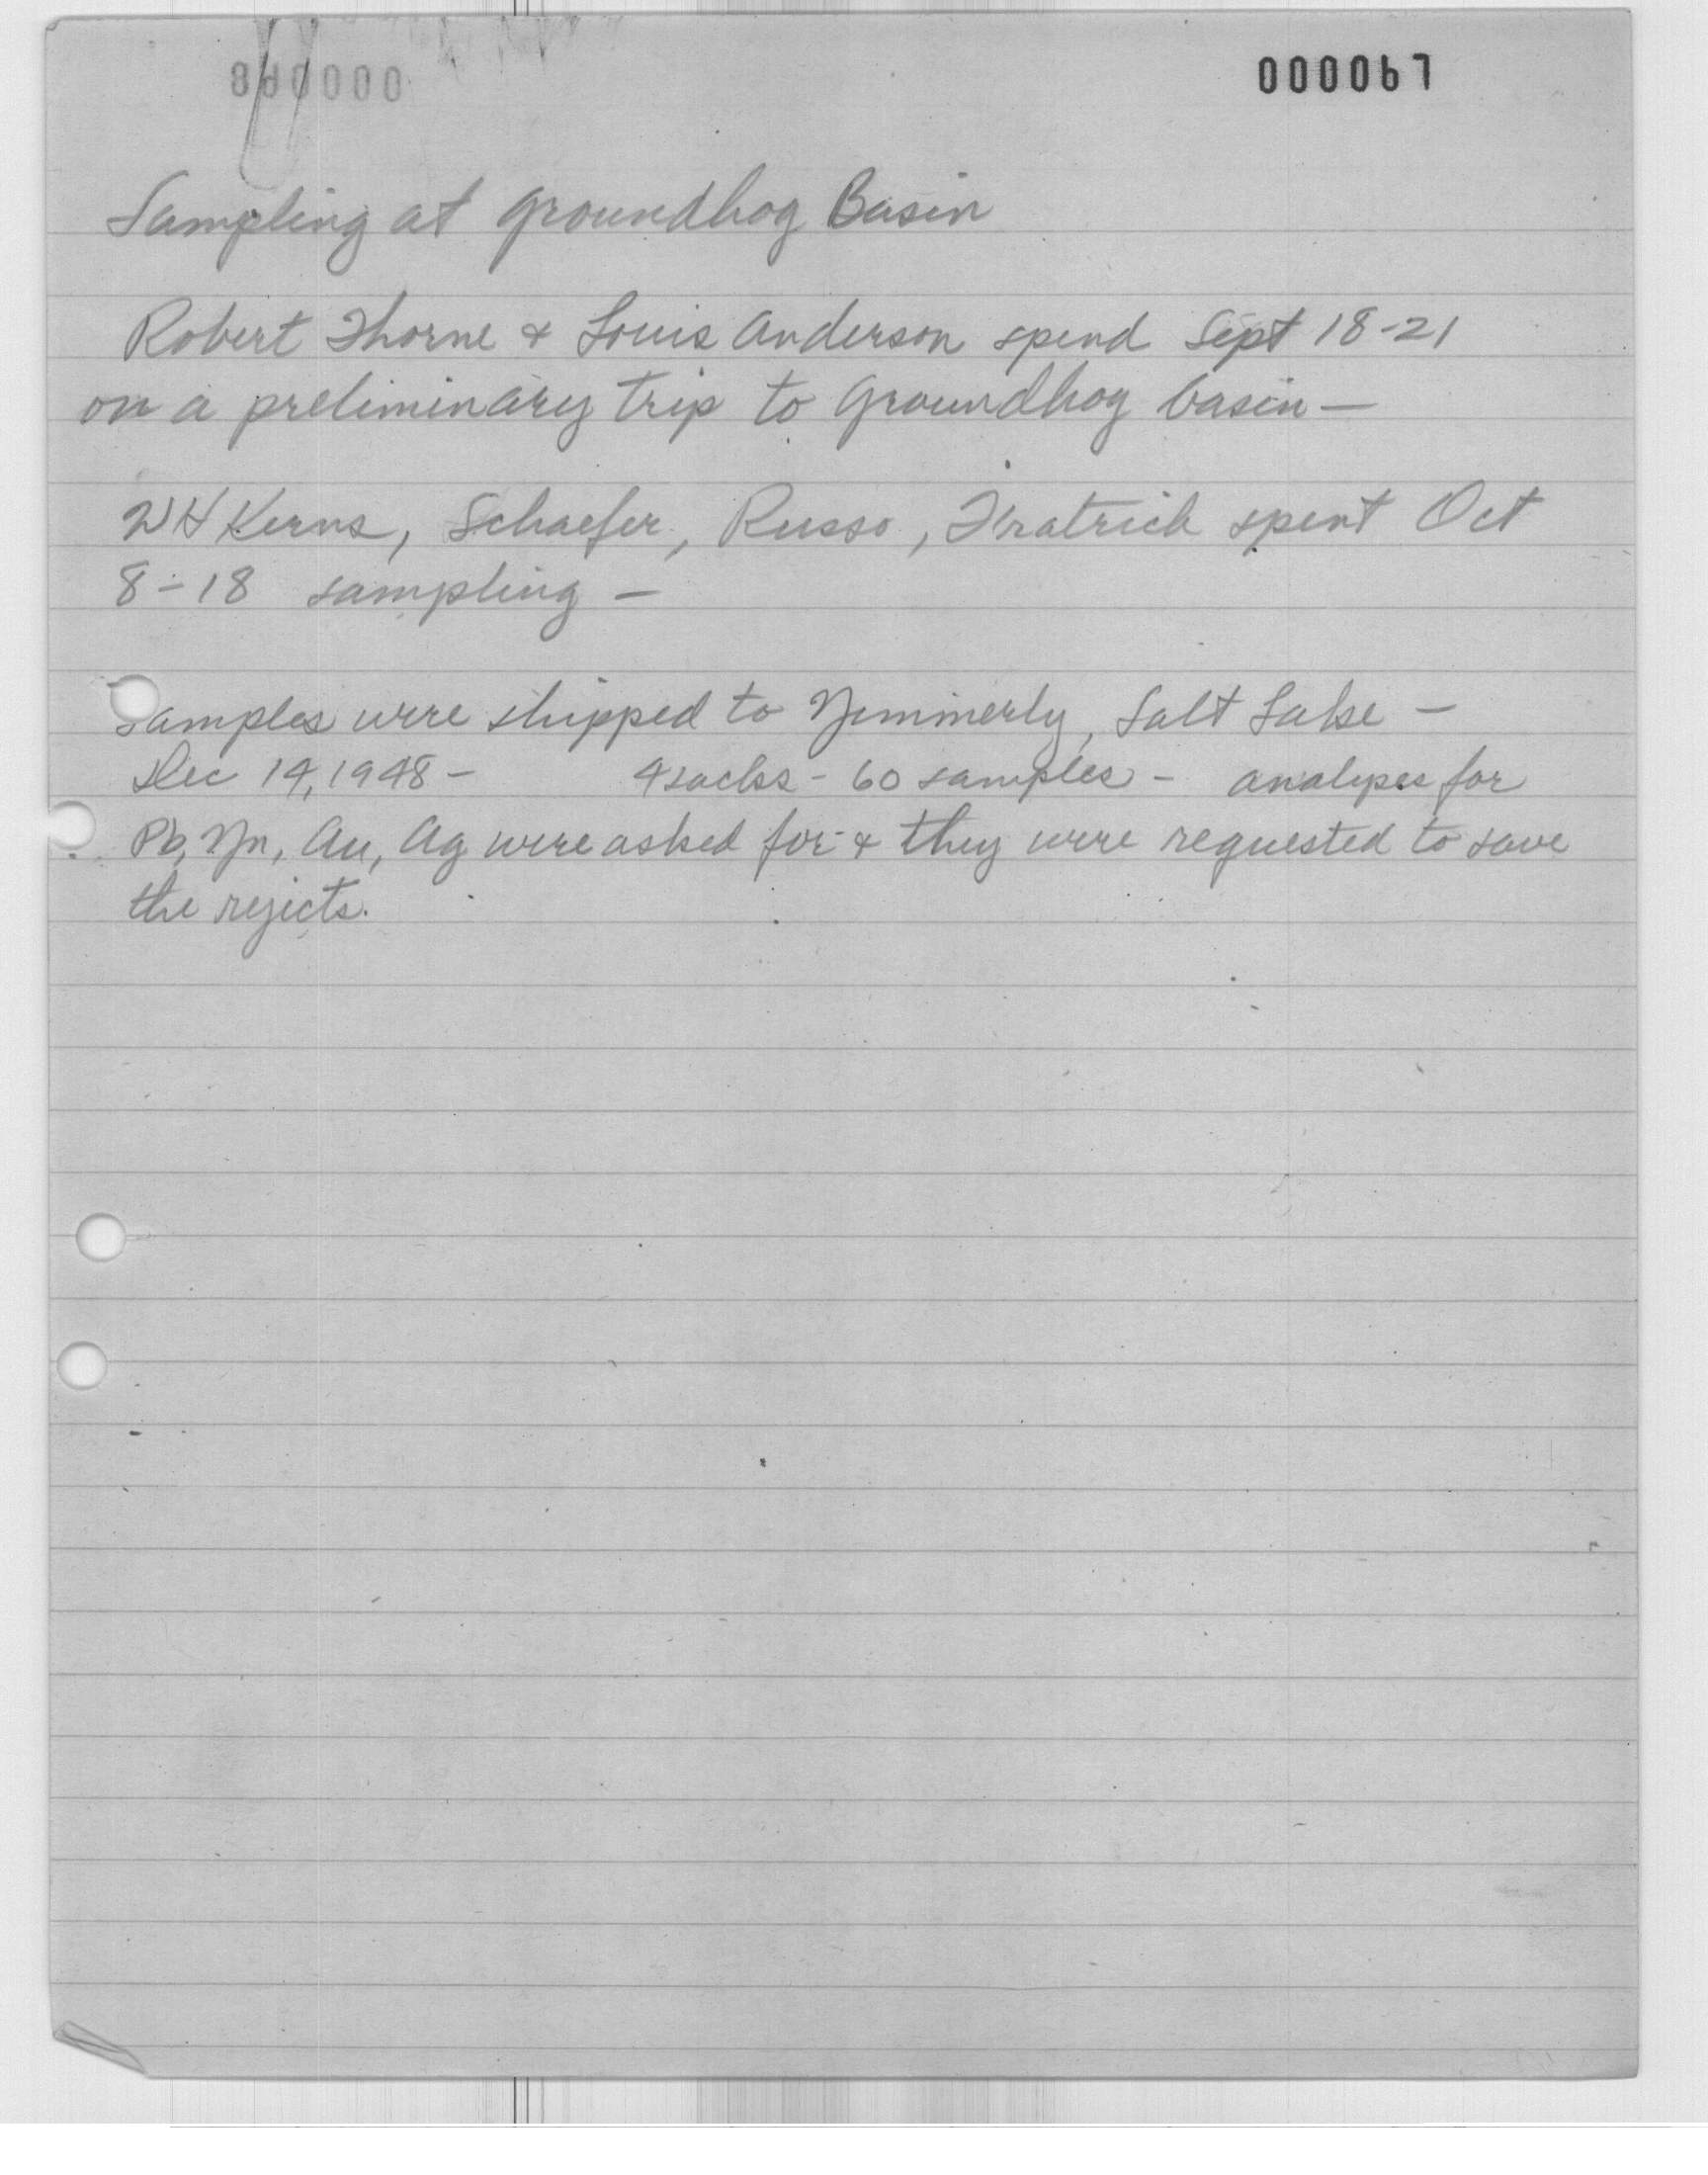 000067
Sampling at Groundhog Basin
Robert Thorne & Louis Anderson spend Sept 18-21
on a preliminary trip to Groundhog basin —
WH Kerns, Schaefer, Russo, spent Oct
8-18 sampling —
Samples were shipped to Zimmerly, Salt Lake —
Dec 14, 1948 - 4 sacks - 60 samples - analyses for
Pb, Zn, Au, Ag were asked for & they were requested to save
the rejects.